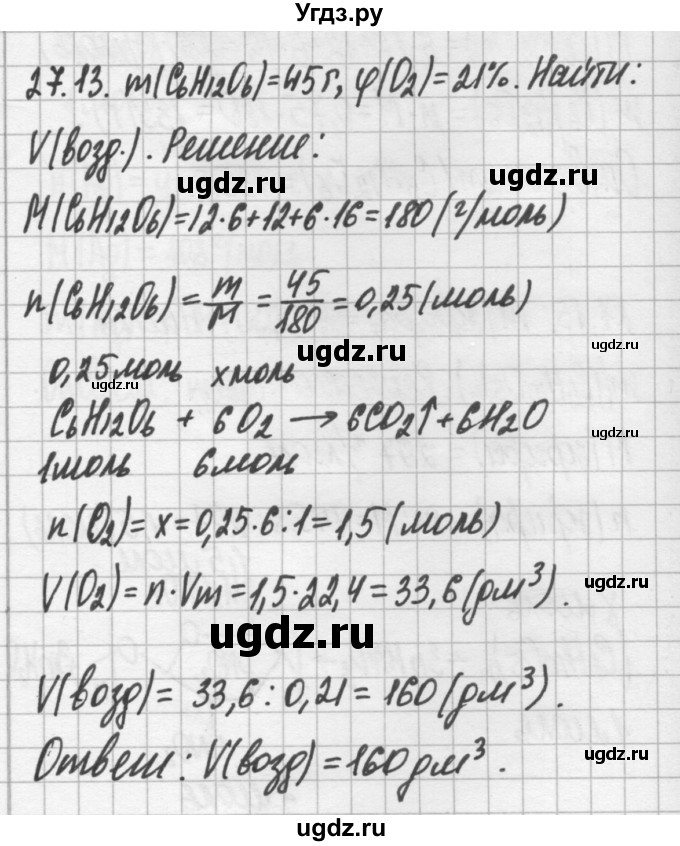 Угдз.ру
27.13. m(C6H12O6)=45г, φ(O2)=21%. Найти:
V(возд.). Решение:
ugdz.ru
ugdz.ru
M(C6H12O6)=12·6+12+6·16=180(г/моль)
n(C6H12O6)=m/M=45/180=0,25(моль)
ugdz.ru
0,25моль xмоль
ugdz.ru
C6H12O6 + 6O2 → 6CO2↑+6H2O
ugdz.ru
1моль 6моль
n(O2)=x=0,25·6:1=1,5(моль)
V(O2)=n·Vm=1,5·22,4=33,6(дм³).
ugdz.ru
ugdz.ru
V(возд)=33,6:0,21=160(дм³).
Ответ: V(возд)=160дм³.
ugdz.ru
ugdz.ru